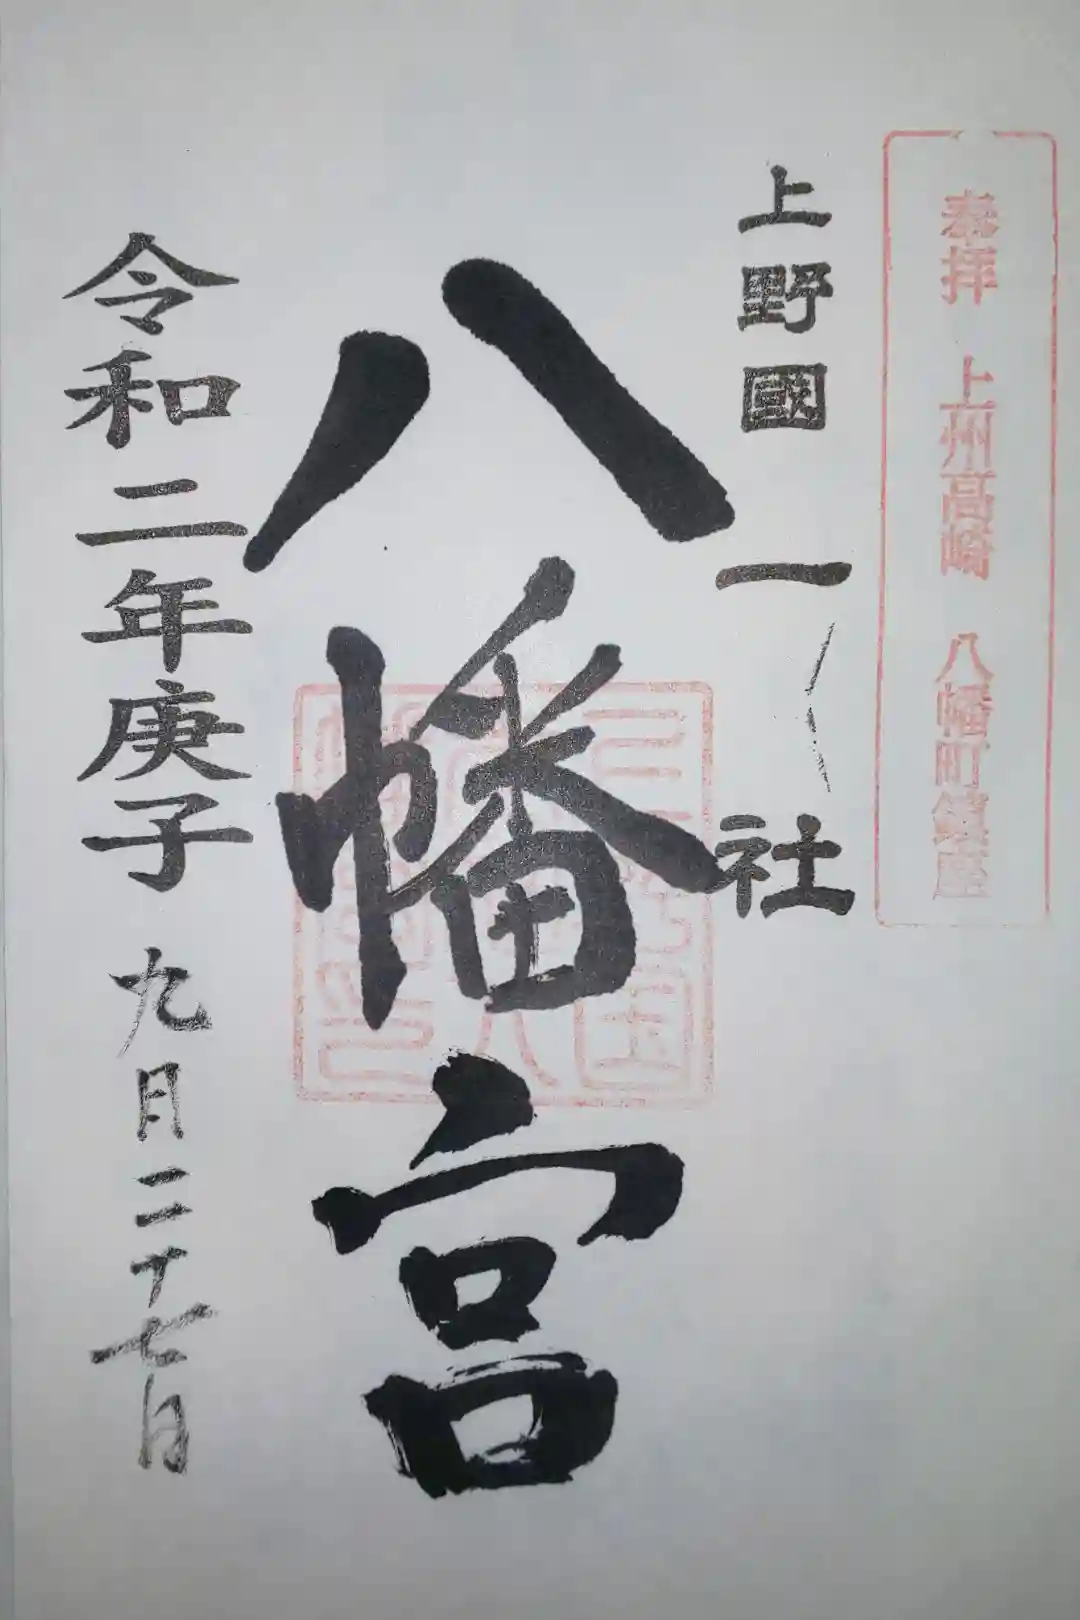 奉拝 上州高崎 八幡町鎮座
上野國一社
八幡宮
令和二年庚子 九月二十七日